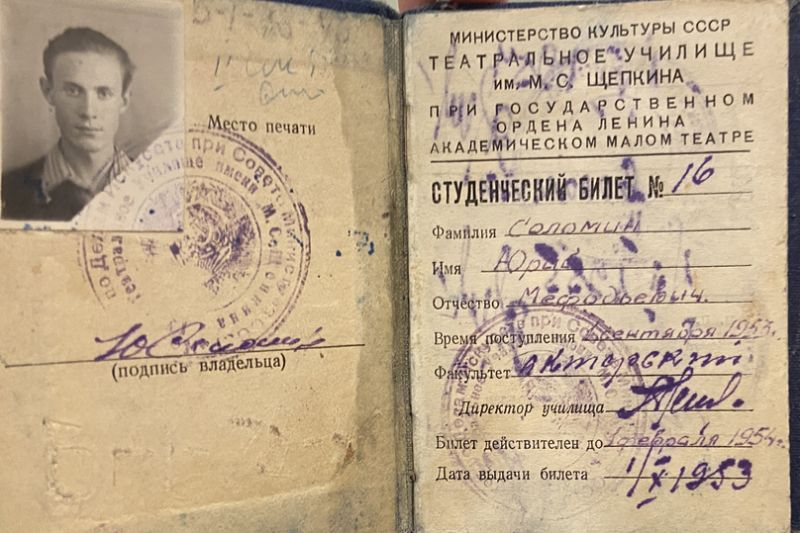 Место печати
(подпись владельца)
МИНИСТЕРСТВО КУЛЬТУРЫ СССР
ТЕАТРАЛЬНОЕ УЧИЛИЩЕ
им. М. С. ЩЕПКИНА
ПРИ ГОСУДАРСТВЕННОМ
ОРДЕНА ЛЕНИНА
АКАДЕМИЧЕСКОМ МАЛОМ ТЕАТРЕ
СТУДЕНЧЕСКИЙ БИЛЕТ № 16
Фамилия Соломин
Имя Юрий
Отчество Мефодьевич.
Время поступления 1 сентября 1953г.
Факультет актерский
Директор училища
Билет действителен до 1 февраля 1954г.
Дата выдачи билета 1/X 1953